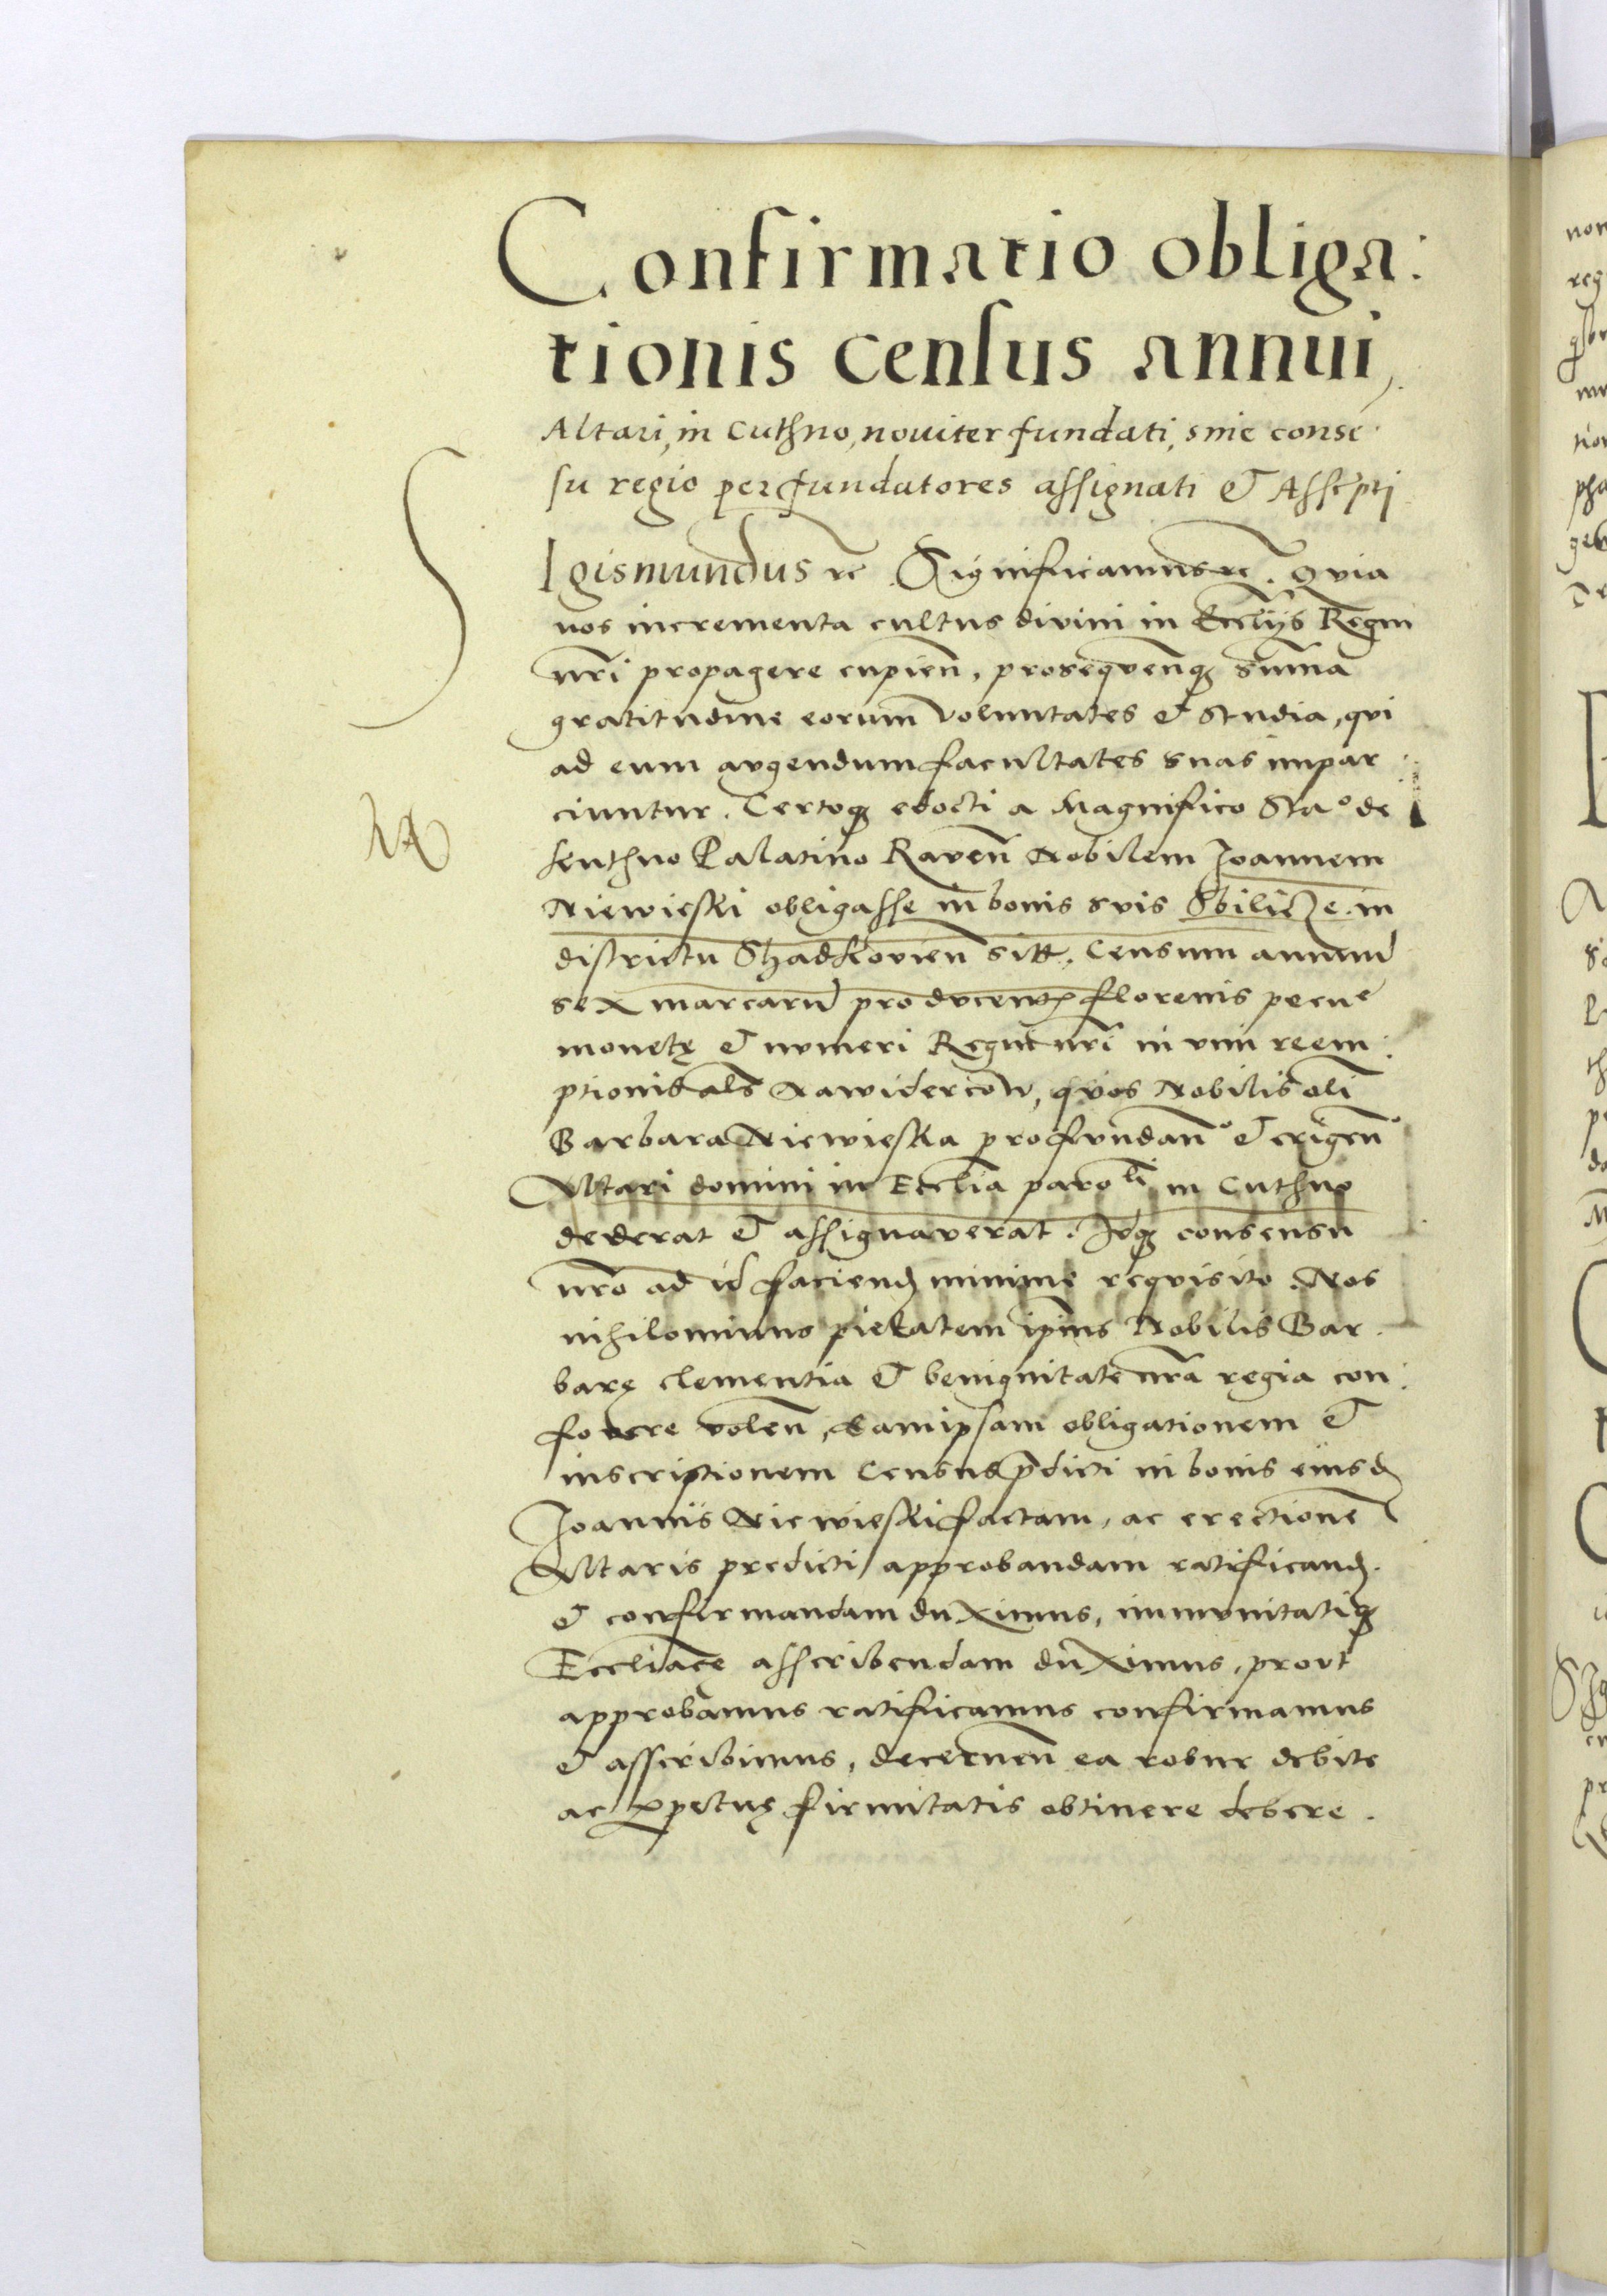 Confirmatio obliga:
tionis census annui,
Altari, in Cuthno, nouiter fundati, sine conse˜
su regio per fundatores assignati & Asscr̃pti
SIgismundus rc̃ Significamus rc̃. Qvia
nos incrementa cultus divini in Eccl̃ijs Regni
nr̃i propagere cupien̄, proseqvenq̃ sum̃a
gratitudine eorum voluntates & studia, qvi
ad eum avgendum facultates suas impar:
ciuntur. Certoq̃ edocti a Magnifico Sta° de
Kuthno Palatino Raven̄ Nobilem Joannem
Niewieski obligasse in bonis svis Sbilicze in
districtu Shadkovien̄ sitt. Censum annuũ
sex marcarũ pro dvcentʒ florenis pecũe
monetę & nvmeri Regni nr̃i in vim reem:
ptionis al̃s Nawidercow, qvos Nobilis oli̅
Barbara Niewieska pro fvndan̄° & erigen̄°
Altari domini in Eccl̃ia paro^li in Cuthno
dederat & assignaverat. Idq̃ consensu
nr̃o ad id faciend̨ minime reqvisito. Nos
nihilominus pietatem ip̃ius Nobilis Bar:
barę clementia & benignitate nr̃a regia con:
fovere volen̄, Eam ipsam obligationem &
inscriptionem Census p̃dicti in bonis eiusd̨
Joannis Niewieski factam, ac erectionẽ
Altaris predicti approbandam ratificand̨.
& confirmandam duximus, immvnitatiq̃
Eccl̃iacẽ asscribendam duximus, provt
approbamus ratificamus confirmamus
& asscribimus, decernen̄ ea robur debite
ac ꝑpetuę firmitatis obtinere debere.